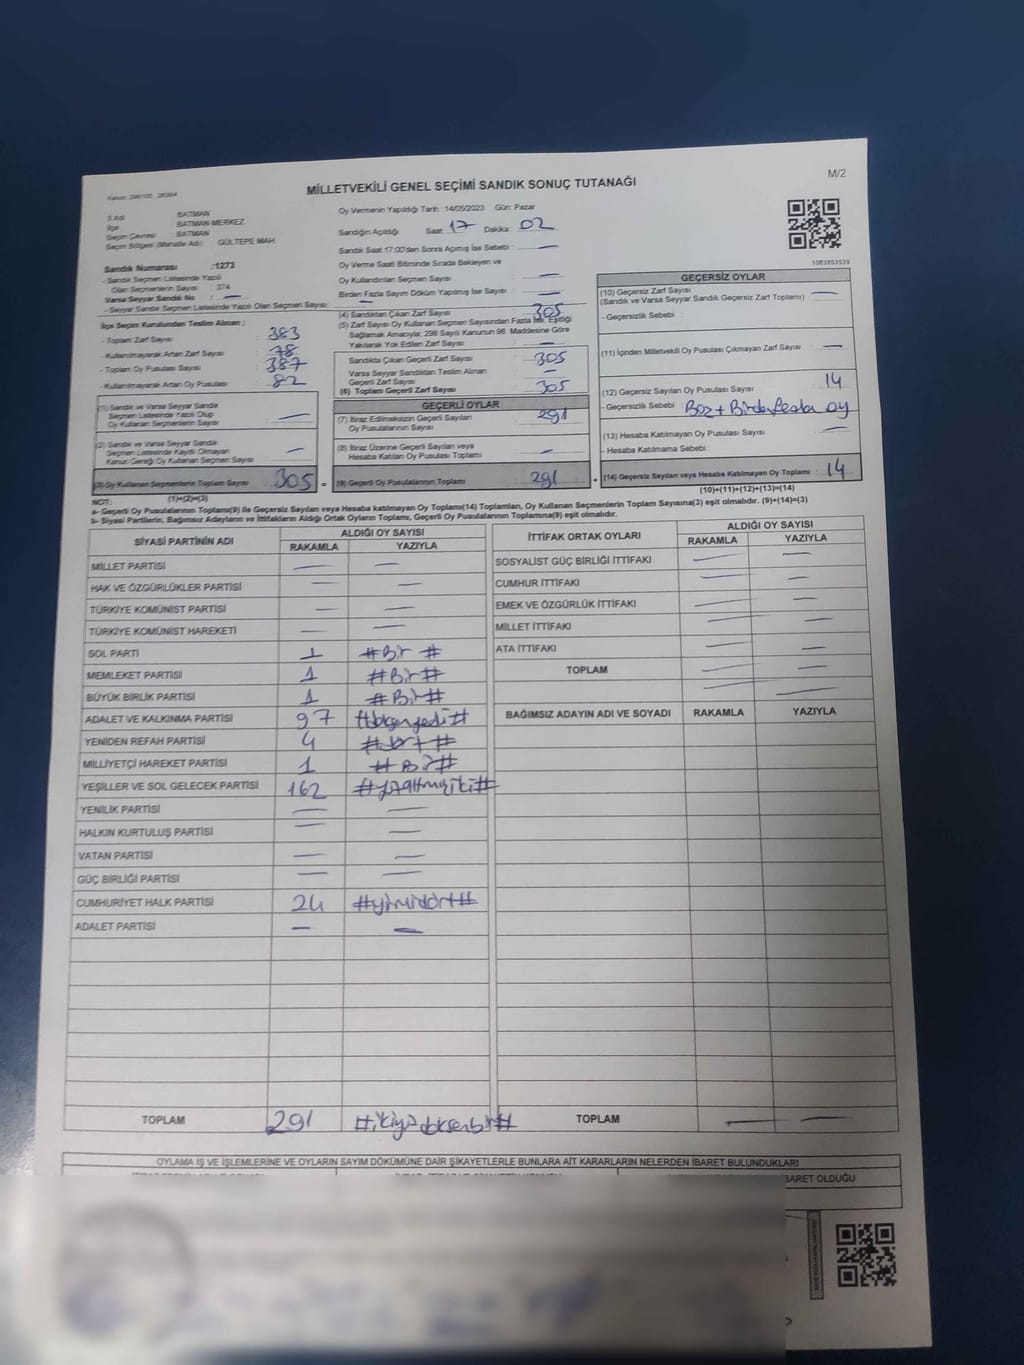 MİLLETVEKİLİ GENEL SEÇİMİ SANDIK SONUÇ TUTANAĞI
M/2
İl Adı : BATMAN
İlçe : BATMAN MERKEZ
Seçim Çevresi : BATMAN
Seçim Bölgesi (Mahalle Adı) GÜLTEPE MAH.
Oy Vermenin Yapıldığı Tarih : 14/05/2023 Gün: Pazar
Sandığın Açıldığı Saat: 17 Dakika : 02
Sandık Saat 17:00'den Sonra Açımış İse Sebebi : —
Oy Verme Saati Bitiminde Sırada Bekleyen ve
Oy Kullandırılan Seçmen Sayısı : —
Birden Fazla Sayım Döküm Yapılmış İse Sayısı : —
1083853539
Sandık Numarası :1273
- Sandık Seçmen Listesinde Yazılı
Olan Seçmenlerin Sayısı : 374
Varsa Seyyar Sandık No : —
- Seyyar Sandık Seçmen Listesinde Yazılı Olan Seçmen Sayısı: —
İlçe Seçim Kurulundan Teslim Alınan ;
- Toplam Zarf Sayısı : 383
- Kullanılmayarak Artan Zarf Sayısı : 78
- Toplam Oy Pusulası Sayısı : 387
- Kullanılmayarak Artan Oy Pusulası : 82
(1) Sandık ve Varsa Seyyar Sandık
Seçmen Listesinde Yazılı Olup
Oy Kullanan Seçmenlerin Sayısı : —
(2) Sandık ve Varsa Seyyar Sandık
Seçmen Listesinde Kayıtlı Olmayan
Kanun Gereği Oy Kullanan Seçmen Sayısı : —
(3) Oy Kullanan Seçmenlerin Toplam Sayısı : 305
(1)+(2)=(3)
(4) Sandıktan Çıkan Zarf Sayısı : 305
(5) Zarf Sayısı Oy Kullanan Seçmen Sayısından Fazla İse, Eşitliği
Sağlamak Amacıyla; 298 Sayılı Kanunun 98. Maddesine Göre
Yakılarak Yok Edilen Zarf Sayısı : —
Sandıkta Çıkan Geçerli Zarf Sayısı : 305
Varsa Seyyar Sandıktan Teslim Alınan
Geçerli Zarf Sayısı : —
(6) Toplam Geçerli Zarf Sayısı : 305
GEÇERLİ OYLAR
(7) İtiraz Edilmeksizin Geçerli Sayılan
Oy Pusulalarının Sayısı : 291
(8) İtiraz Üzerine Geçerli Sayılan veya
Hesaba Katılan Oy Pusulası Toplamı : —
(9) Geçerli Oy Pusulalarının Toplamı : 291
GEÇERSİZ OYLAR
(10) Geçersiz Zarf Sayısı : —
(Sandık ve Varsa Seyyar Sandık Geçersiz Zarf Toplamı)
- Geçersizlik Sebebi :
(11) İçinden Milletvekili Oy Pusulası Çıkmayan Zarf Sayısı : —
(12) Geçersiz Sayılan Oy Pusulası Sayısı : 14
- Geçersizlik Sebebi : Boz + Birden fazla oy
(13) Hesaba Katılmayan Oy Pusulası Sayısı : —
- Hesaba Katılmama Sebebi :
(14) Geçersiz Sayılan veya Hesaba Katılmayan Oy Toplamı : 14
(10)+(11)+(12)+(13)=(14)
NOT:
a- Geçerli Oy Pusulalarının Toplamı(9) ile Geçersiz Sayılan veya Hesaba katılmayan Oy Toplamı(14) Toplamları, Oy Kullanan Seçmenlerin Toplam Sayısına(3) eşit olmalıdır. (9)+(14)=(3)
b- Siyasi Partilerin, Bağımsız Adayların ve İttifakların Aldığı Ortak Oyların Toplamı, Geçerli Oy Pusulalarının Toplamına(9) eşit olmalıdır.
SİYASİ PARTİNİN ADI ALDIĞI OY SAYISI
RAKAMLA YAZIYLA
MİLLET PARTİSİ — —
HAK VE ÖZGÜRLÜKLER PARTİSİ — —
TÜRKİYE KOMÜNİST PARTİSİ — —
TÜRKİYE KOMÜNİST HAREKETİ — —
SOL PARTİ 1 #Bir #
MEMLEKET PARTİSİ 1 #Bir#
BÜYÜK BİRLİK PARTİSİ 1 #Bir#
ADALET VE KALKINMA PARTİSİ 97
YENİDEN REFAH PARTİSİ 4
MİLLİYETÇİ HAREKET PARTİSİ 1 #Bir#
YEŞİLLER VE SOL GELECEK PARTİSİ 162
YENİLİK PARTİSİ — —
HALKIN KURTULUŞ PARTİSİ — —
VATAN PARTİSİ — —
GÜÇ BİRLİĞİ PARTİSİ — —
CUMHURİYET HALK PARTİSİ 24 #yirmidört#
ADALET PARTİSİ — —
TOPLAM 291
İTTİFAK ORTAK OYLARI ALDIĞI OY SAYISI
RAKAMLA YAZIYLA
SOSYALİST GÜÇ BİRLİĞİ İTTİFAKI — —
CUMHUR İTTİFAKI — —
EMEK VE ÖZGÜRLÜK İTTİFAKI — —
MİLLET İTTİFAKI — —
ATA İTTİFAKI — —
TOPLAM — —
BAĞIMSIZ ADAYIN ADI VE SOYADI RAKAMLA YAZIYLA
TOPLAM — —
OYLAMA İŞ VE İŞLEMLERİNE VE OYLARIN SAYIM DÖKÜMÜNE DAİR ŞİKAYETLERLE BUNLARA AİT KARARLARIN NELERDEN İBARET BULUNDUKLARI
BARET OLDUĞU